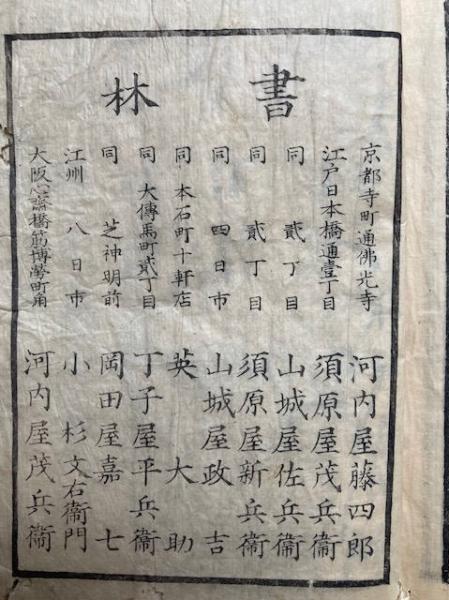 書林
京都寺町通佛光寺 河内屋藤四郎
江戸日本橋通壹丁目 須原屋茂兵衞
同 貳丁目 山城屋佐兵衞
同 貳丁目 須原屋新兵衞
同 四日市 山城屋政吉
同 本石町十軒店 英大助
同 大傳馬町貳丁目 丁子屋平兵衞
同 芝神明前 岡田屋嘉七
江州 八日市 小杉文右衞門
大阪心斎橋筋博勞町角 河内屋茂兵衞